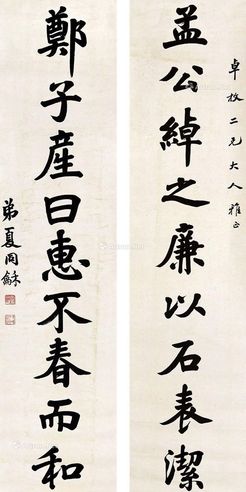 卓放二兄大人雅正
孟公綽之廉以石表潔
鄭子産曰惠不春而和
弟夏同龢